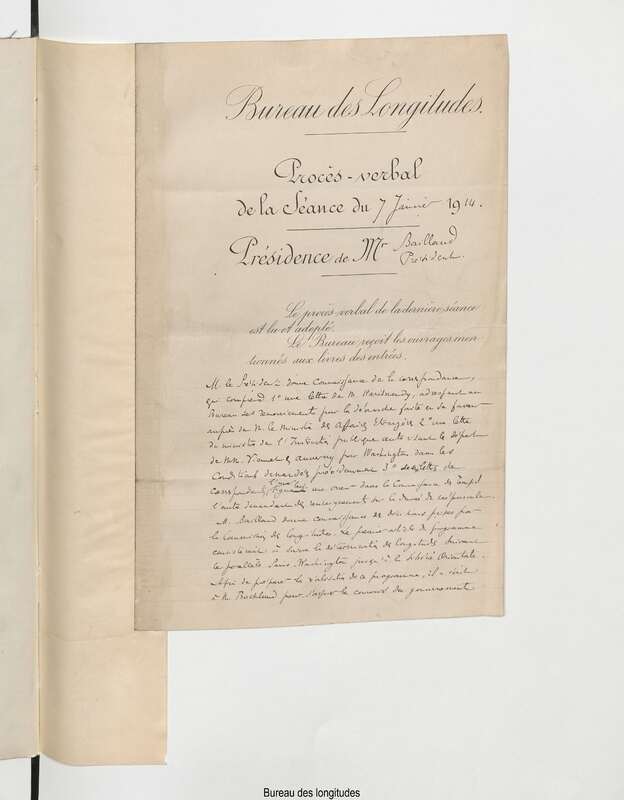 Bureau des Longitudes.
Procès-verbal
de la Séance du 7 Janvier 1914.
Présidence de Mr Baillaud
Président.
Le procès verbal de la dernière séance
est lu et adopté.
Le Bureau reçoit les ouvrages men
tionnés aux livres des entrées.
M. le Président donne connaissance de la correspondance,
qui comprend 1° une lettre de M. adressant au
Bureau ses remerciements pour la démarche faite en sa faveur
auprès de M. le Ministre des Affaires Etrangères 2° une lettre
du ministre de l'Instruction publique autorisant le départ
de MM. Viennet & Auverny pour Washington dans les
conditions demandées précédemment 3° des lettres de
l'une
l'autre demandant des renseignements sur la durée du crépuscule.
M. Baillaud donne connaissance des décisions prises par
la Commission des longitudes. Le premier article de programme
consisterait à suivre la détermination des longitudes suivant
le parallèle Paris-Washington jusqu'à la Sibérie Orientale.
Afin de préparer la réalisation de ce programme, il a écrit
à M. Backlund pour s'assurer le concours du gouvernement
Bureau des longitudes